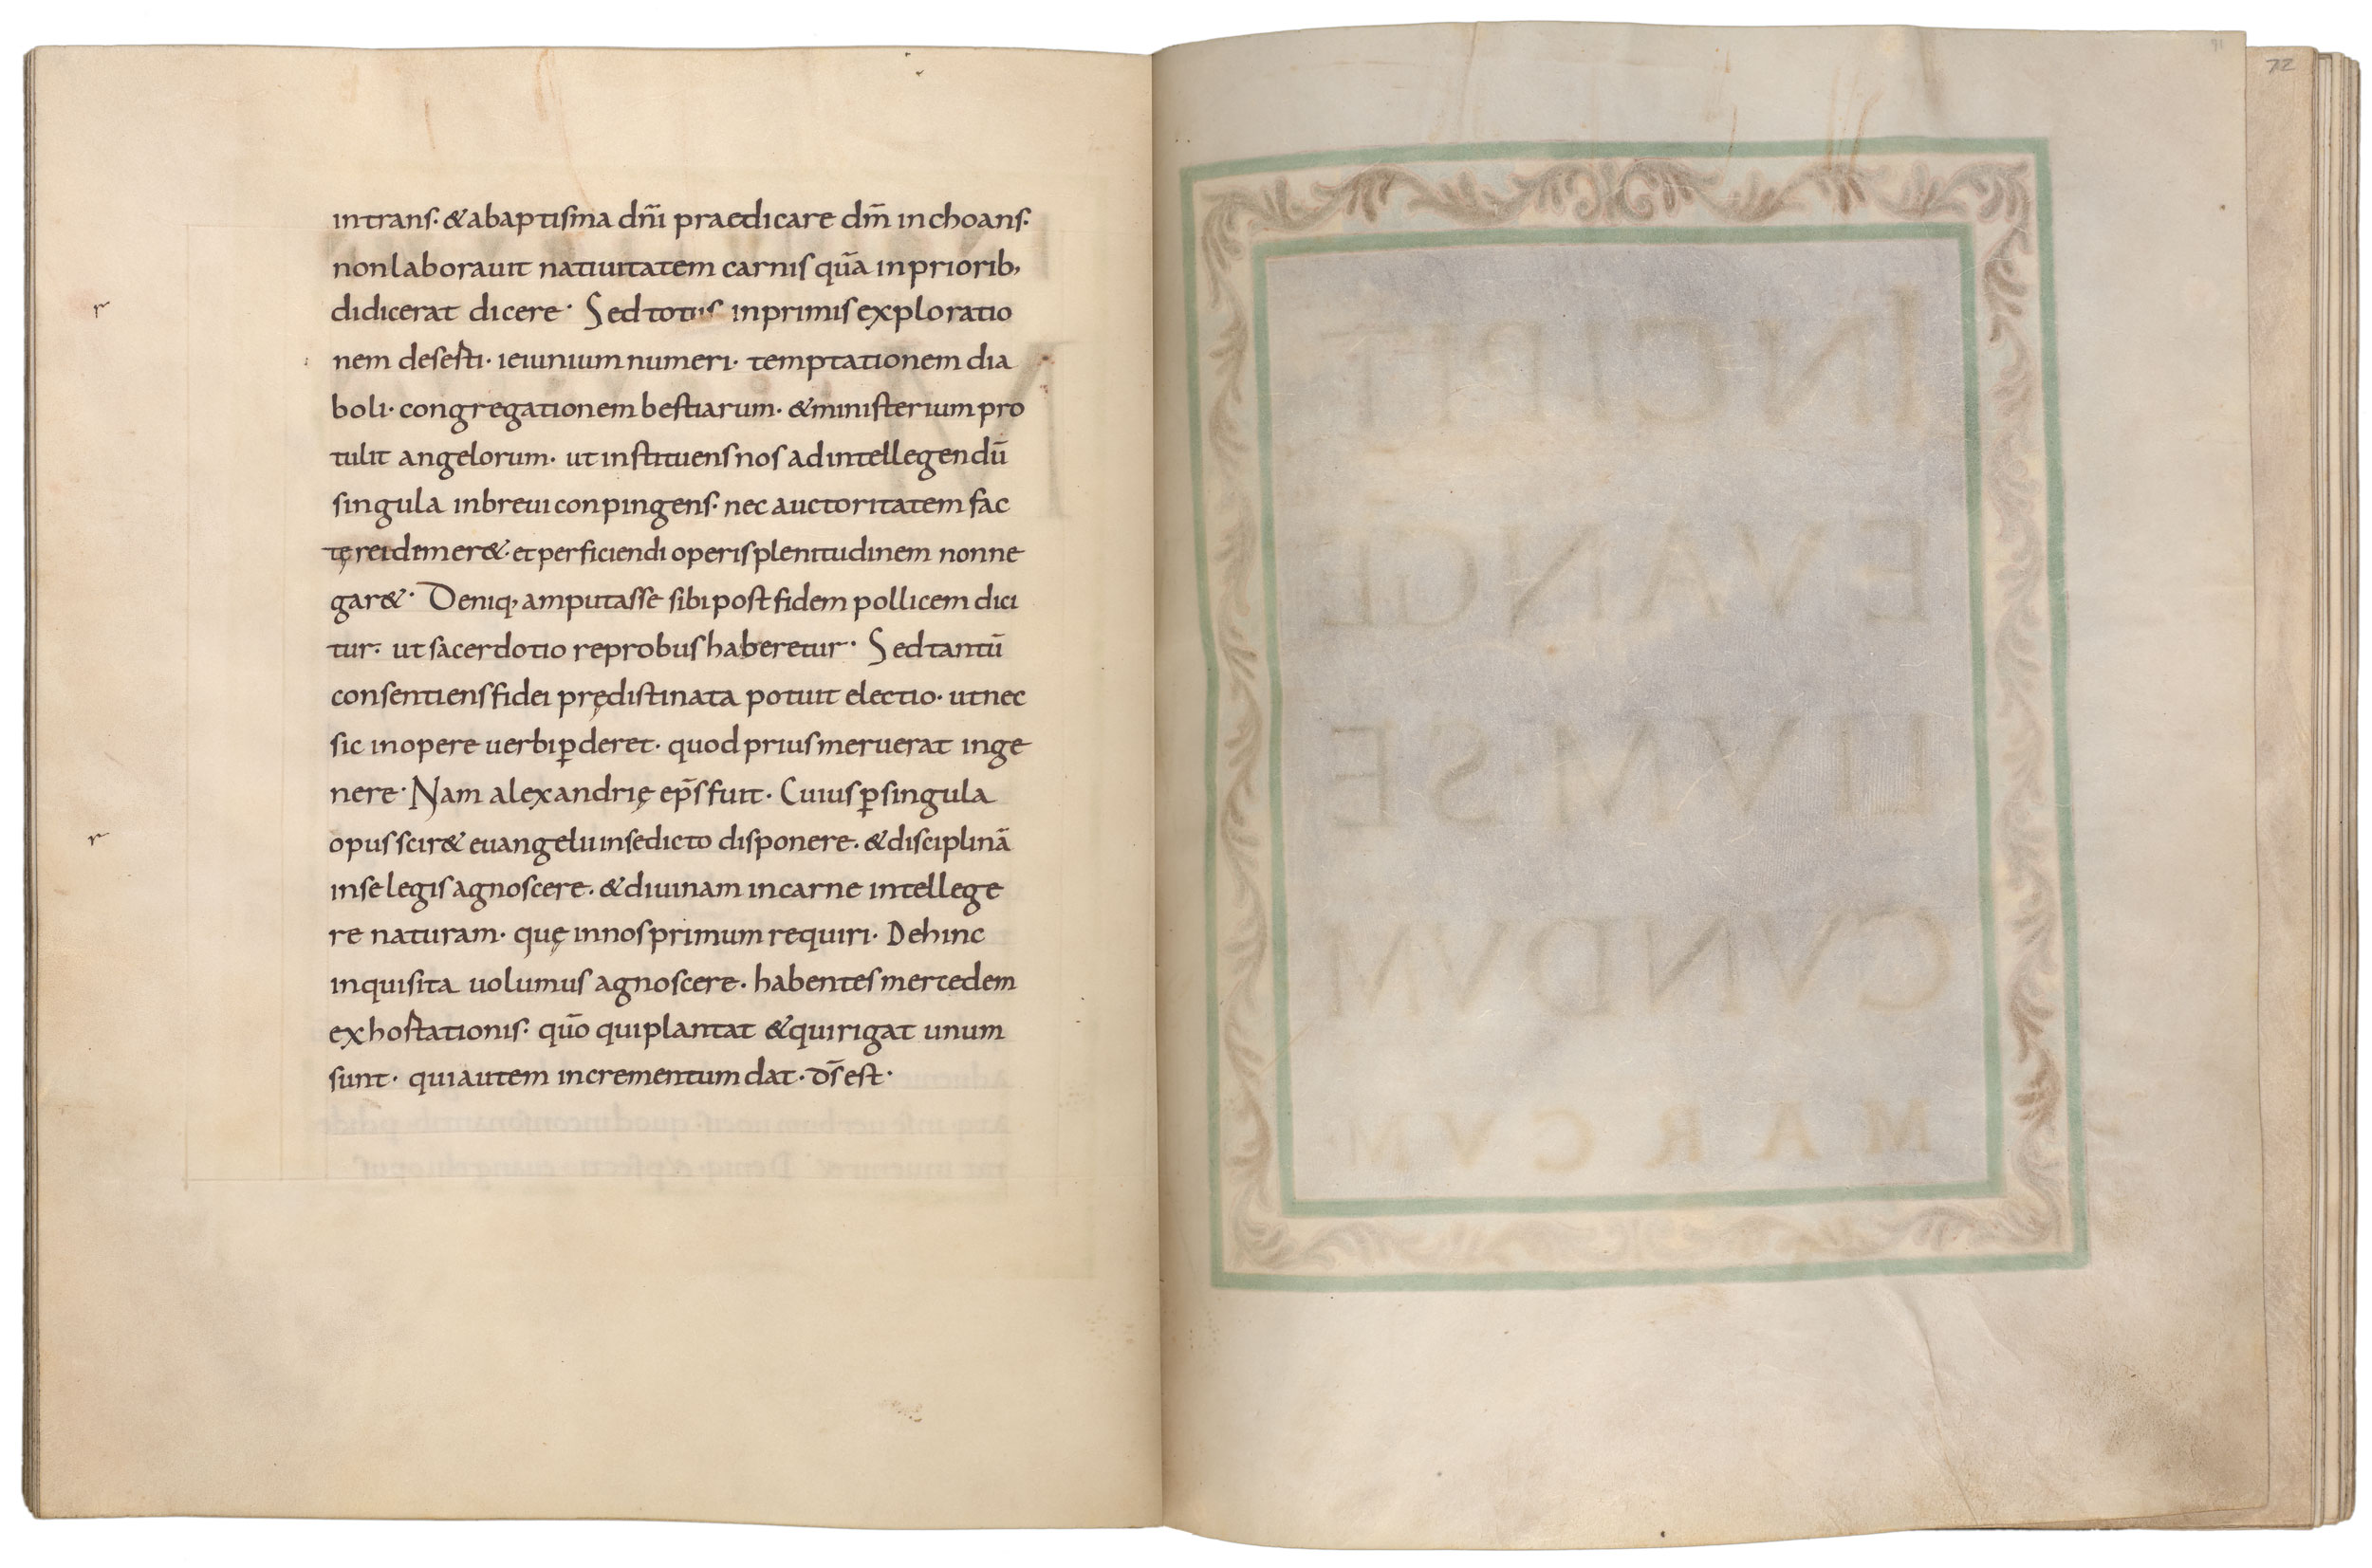 intrans· & abaptisma dn̄i praedicare dm̄ inchoans·
non laborauit natiuitatem carnis quā in priorib,
didicerat dicere· Sed totus in primis exploratio
nem deserti· ieiunium numeri· temptationem dia
boli· congregationem bestiarum· & ministerium pro
tulit angelorum· ut instituens nos ad intellegendū
singula in breui conpingens· nec auctoritatem fac
tę rei demer&· et perficiendi operis plenitudinem non ne
gar&· Deniq, amputasse sibi post fidem pollicem dici
tur· ut sacerdotio reprobus haberetur· Sed tantū
consentiens fidei prędistinata potuit electio· ut nec
sic in opere uerbi ꝑderet· quod prius meruerat in ge
nere· Nam alexandrię ep̄s fuit· Cuius ꝑ singula
opus scir& euangelii in se dicto disponere· & disciplinā
in se legis agnoscere· & diuinam in carne intellege
re naturam· quę in nos primum requiri· Dehinc
inquisita uolumus agnoscere· habentes mercedem
exhortationis· quō qui plantat & qui rigat unum
sunt· qui autem incrementum dat· ds̄ est·
91
72
INCIPIT
EVANGE
LIVM SE
CVNDVM
MARCVM